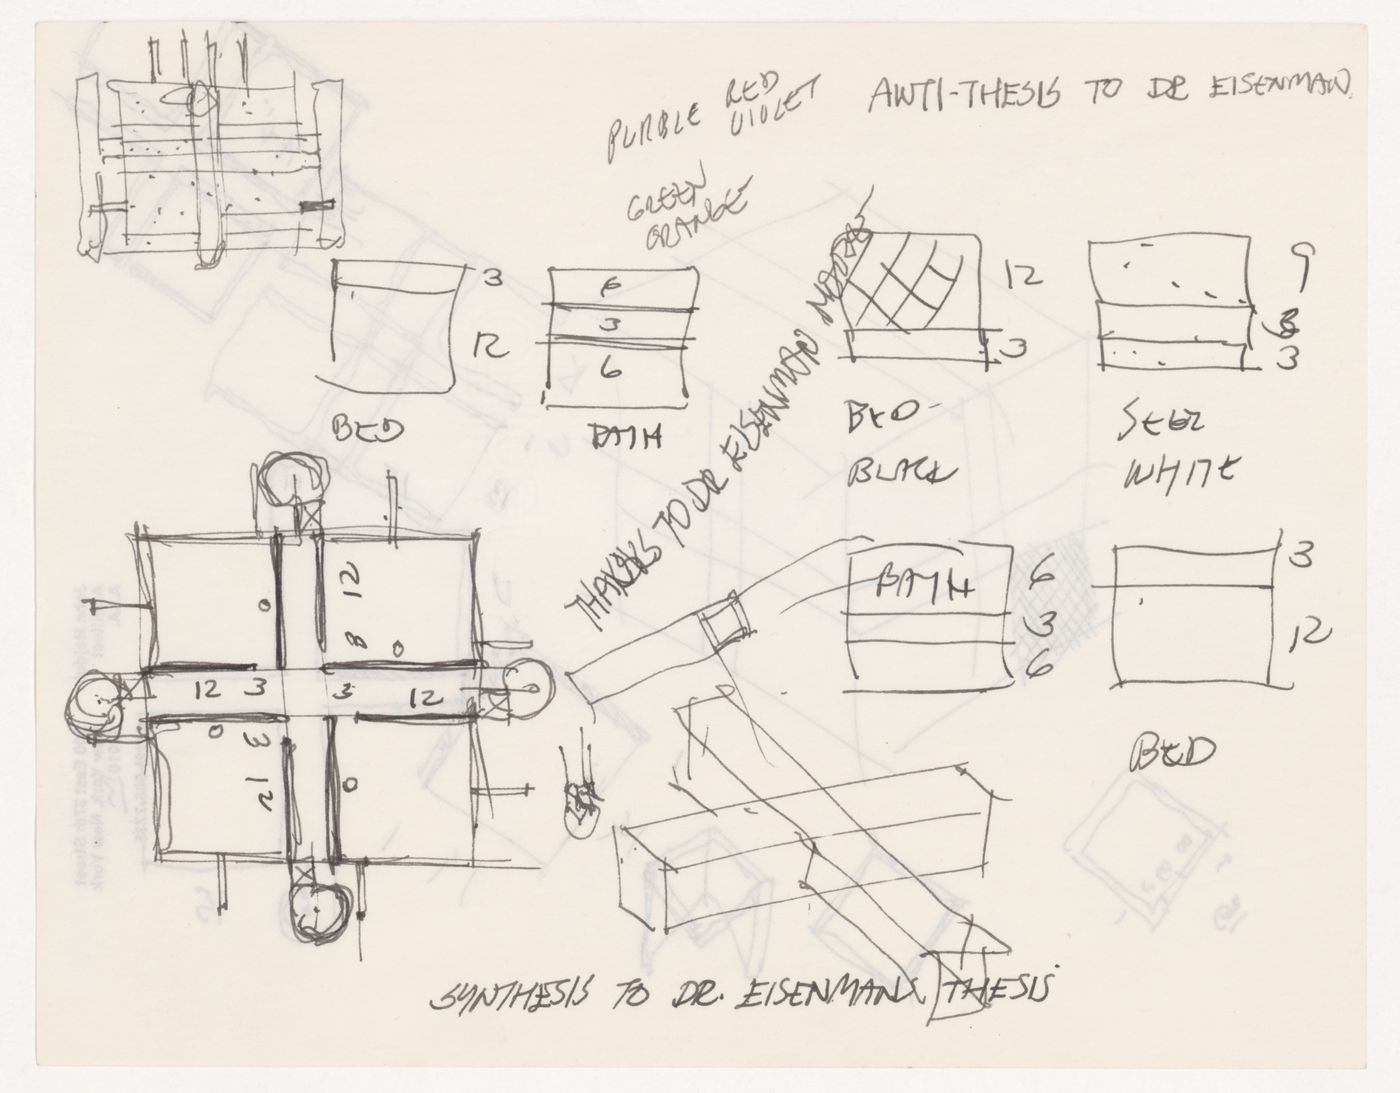 ANTI-THESIS TO DR EISENMAN.
PURBLE RED
VIOLET
GREEN
ORANGE
THANKS TO DR EISENMAN MODEL
3
12
BED
6
3
6
BATH
12
3
BED-
BLACK
9
3
3
WHITE
BATH
6
3
6
3
12
BED
12
8
0
0
12 3 3 12
0
3
12
0
SYNTHESIS TO DR. EISENMANS THESIS